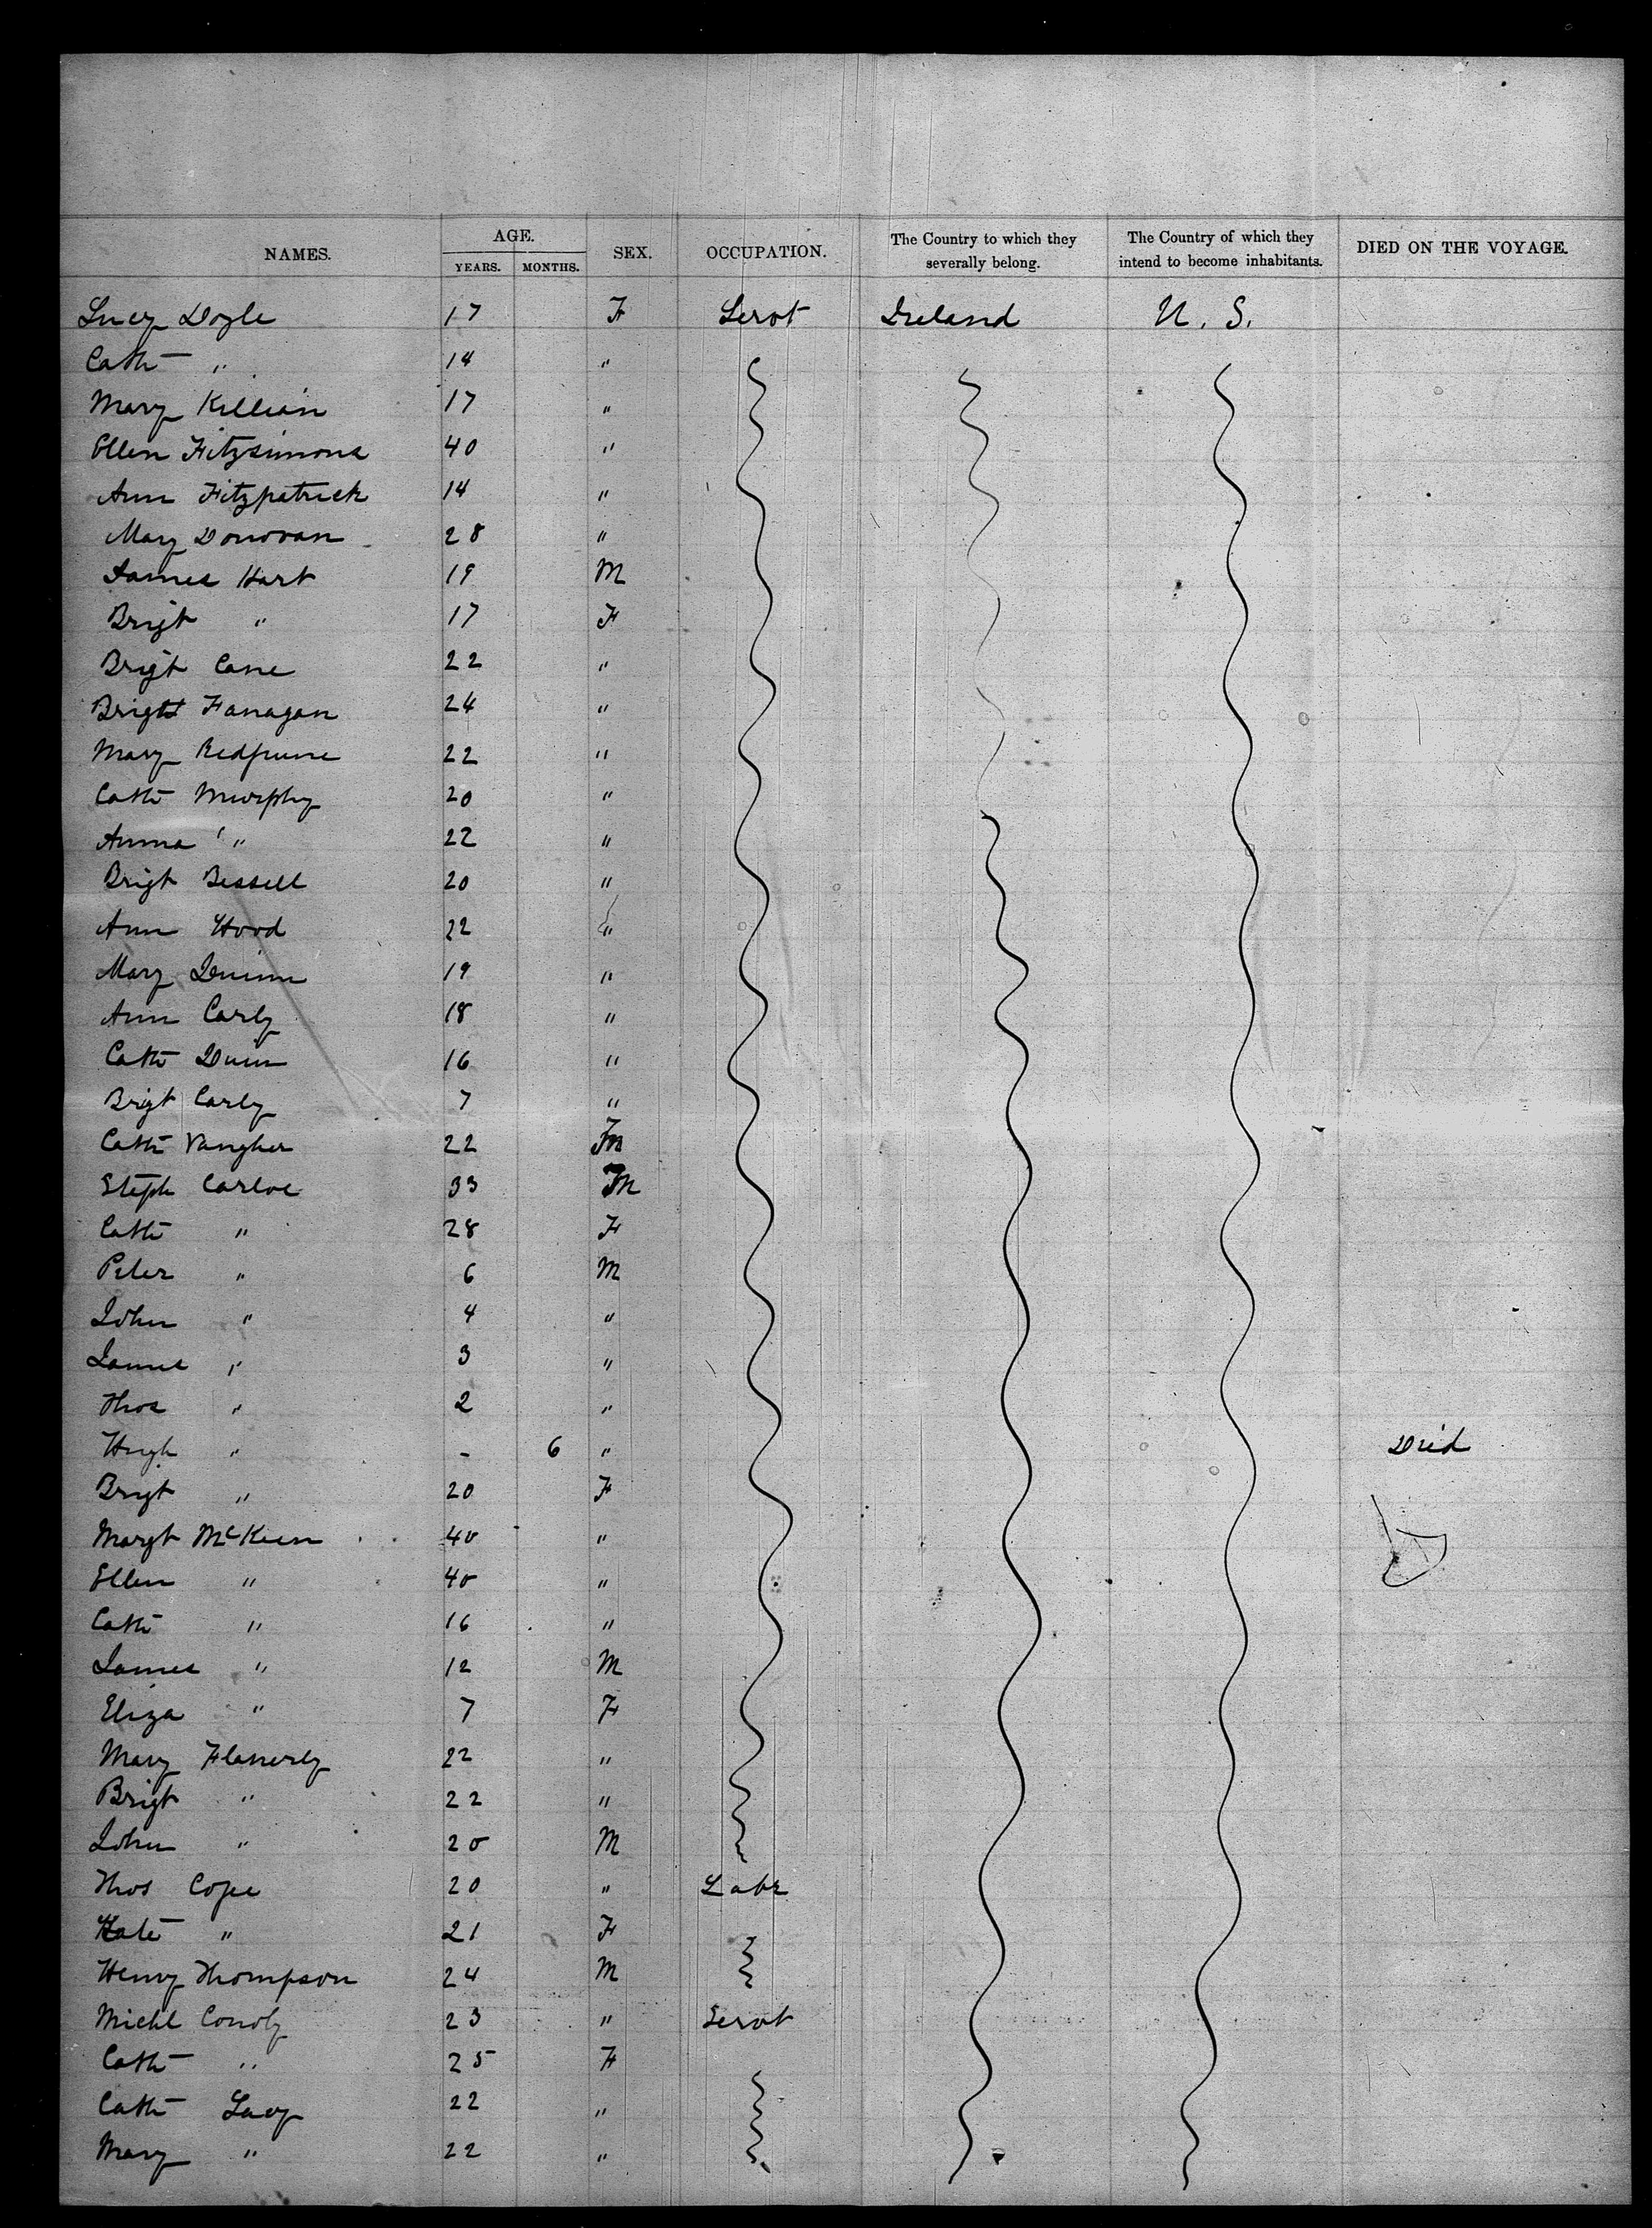 NAMES. AGE. SEX. OCCUPATION. The Country to which they severally belong. The Country of which they intend to become inhabitants. DIED ON THE VOYAGE.
YEARS. MONTHS.
Lucy Doyle 17 F Servt Ireland U. S.
Cath " 14 "
Mary Killian 17 "
Ellen Fitzsimons 40 "
Ann Fitzpatrick 14 "
Mary Donovan 28 "
James Hart 19 M
Brigt " 17 F
Brigt Cane 22 "
Brigt Fanagan 24 "
Mary 22 "
Cath Murphy 20 "
Anna " 22 "
Brigt Bessell 20 "
Ann Hood 22 "
Mary Quinn 19 "
Ann Carly 18 "
Cath Quin 16 "
Brigt Carly 7 "
Cath Vangher 22
Steph Carloe 33 M
Cath " 28 F
Peter " 6 M
John " 4 "
James " 3 "
Thos " 2 "
Hugh " - 6 " Died
Brigt " 20 F
Margt McKeen 40 "
Ellen " 40 "
Cath " 16 "
James " 12 M
Eliza " 7 F
Mary Flanerly 22 "
Brigt " 22 "
John " 20 M
Thos Cope 20 " Labr
Kate " 21 F
Henry Thompson 24 M
Michl Conoly 23 " Servt
Cath " 25 F
Cath Lavy 22 "
Mary " 22 "